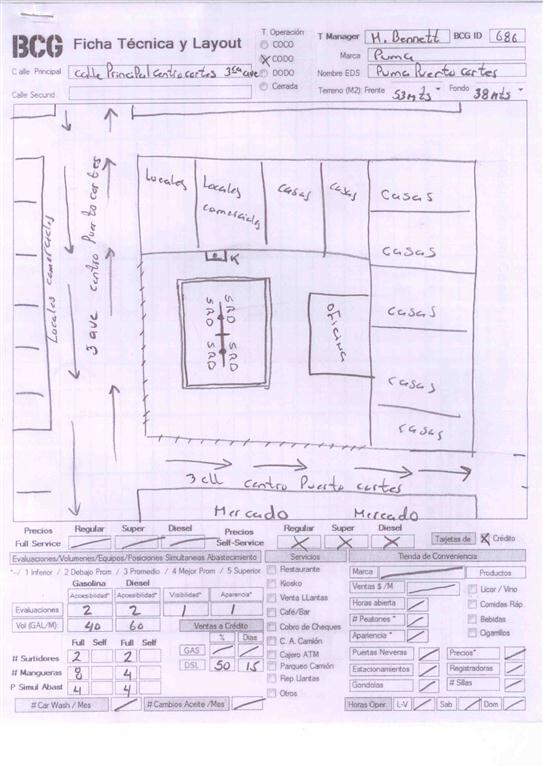 BCG Ficha Técnica y Layout
T. Operación
COCO
CODO
DODO
Cerrada
T Manager H. Bennett BCG ID 686
Marca Puma
Nombre EDS Puma Puerto Cortes
Terreno (M2): Frente 53 mts Fondo 38 mts
Calle Principal calle Principal centro cortes 3era ave
Calle Secund
Locales comerciales
3 ave centro Puerto cortes
Locales
Locales comerciales
casas
casas
Casas
casas
casas
casas
casas
K
SRD SRD
SRD SRD
oficina
3 cll centro Puerto cortes
Mercado Mercado
Precios Regular Super Diesel Precios Regular Super Diesel
Full Service Self-Service
Tarjetas de X Crédito
Evaluaciones/Volumenes/Equipos/Posiciones Simultaneas Abastecimiento
*-/ 1 Inferior / 2 Debajo Prom / 3 Promedio / 4 Mejor Prom / 5 Superior
Gasolina Diesel
Accesibilidad* Accesibilidad* Visibilidad* Aparencia*
Evaluaciones 2 2 1 1
Vol (GAL/M): 40 60
Ventas a Crédito
% Dias
GAS
DSL 50 15
Full Self Full Self
# Surtidores 2 2
# Mangueras 8 4
P Simul Abast 4 4
# Car Wash / Mes
# Cambios Aceite /Mes
Servicios
Restaurante
Kosko
Venta LLantas
Café/Bar
Cobro de Cheques
C. A. Camión
Cajero ATM
Parqueo Camión
Rep Llantas
Otros
Tienda de Conveniencia
Marca
Ventas $ /M
Horas abierta
# Peatones *
Apariencia *
Productos
Licor / Vino
Comidas Ráp.
Bebidas
Cigarrillos
Puertas Neveras Precios*
Estacionamientos Registradoras
Gondolas # Sillas
Horas Oper. L-V Sab Dom